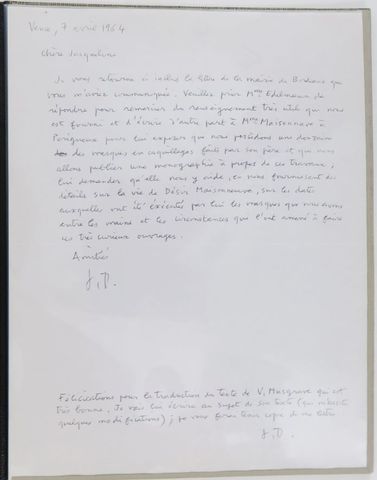 Vence, 7 avril 1964
Chère Jacqueline
Je vous retourne ci inclus la lettre de la mairie de Bordeaux que
vous m'aviez communiquée. Veuillez prier Mme Edelmann de
répondre pour remercier du renseignement très utile qui nous
est fourni et d'écrire d'autre part à Mme Maisonneuve à
Périgueux pour lui exposer que nous possédons une dizaine
des masques en coquillages faits par son père et que nous
allons publier une monographie à propos de ces travaux,
lui demander qu'elle nous y aide, en nous fournissant des
détails sur la vie de Désir Maisonneuve, sur les dates
auxquelles ont été exécutés par lui les masques que nous avons
entre les mains et les circonstances qui l'ont amené à faire
ces très curieux ouvrages.
Amitiés
J. D.
Félicitations pour la traduction du texte de V. Musgrave qui est
très bonne. Je vais lui écrire au sujet de son texte (qui nécessite
quelques modifications) ; je vous ferai tenir copie de ma lettre
J. D.